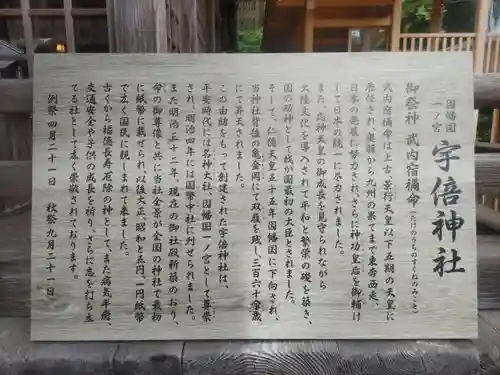 因幡国
一ノ宮 宇倍神社
御祭神 武内宿禰命(たけのうちのすくねのみこと)
武内宿禰命は上古、景行天皇以下五朝の天皇に
歴任され、奥羽から九州の果てまで東奔西走、
日本の発展に努力され、さらに神功皇后を御輔け
して日本の統一に尽力されました。
また、応神天皇の御成長を見守られながら
大陸文化を導入されて平和と繁栄の礎を築き、
国の功神として我が国最初の大臣とされました。
そして、仁徳天皇五十五年因幡国に下向され、
当神社背後の亀金岡にて双履を残し、三百六十余歳
にて昇天されました。
この由緒をもって創建された宇倍神社は、
平安時代には名神大社、因幡国一ノ宮として尊崇
され、明治四年には国幣中社に列せられました。
また明治三十二年、現在の御社殿新築のおり、
命の御尊像と共に当社全景が全国の神社で最初
に紙幣に載せられ、以後大正、昭和と五円、一円紙幣
で広く国民に親しまれて来ました。
古くから福徳長寿厄除の神として、また病気平癒、
交通安全や子供の成長を祈り、さらに志を打ち立
てる社として広く崇敬されております。
例祭四月二十一日 秋祭九月二十一日